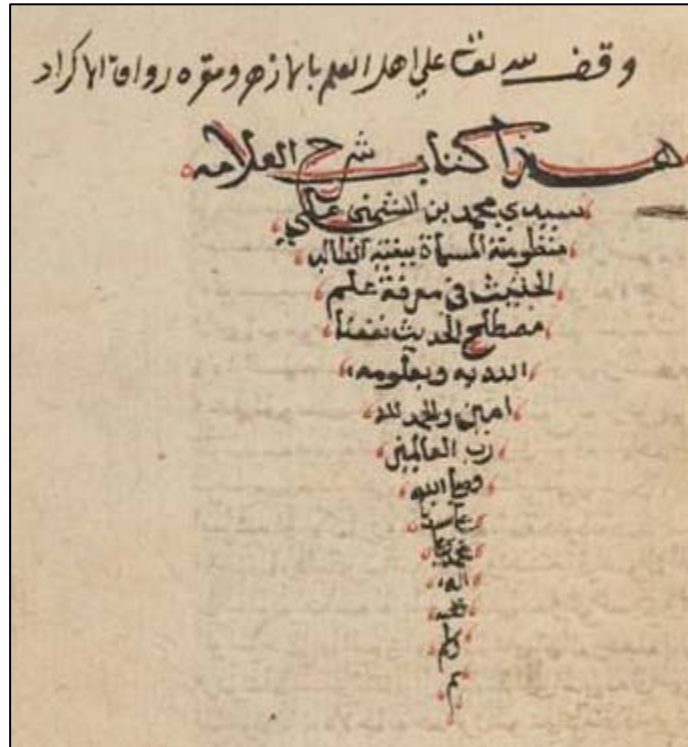 وقف لله تعالى علي اهل العلم بالازهر ومقره رواق الاكراد
هذا كتاب شرح العلامه
سيدي محمد بن الشمني علي
منظومته المسماة ببغية الطالب
الحثيث في معرفة علم
مصطلح الحديث نفعنا
الله به وبعلومه
امين والحمد لله
رب العالمين
وصلي الله
علي سيدنا
محمد
اله